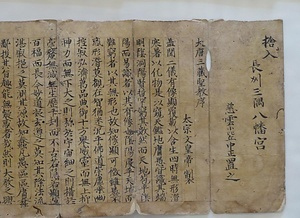 拾入
長州三隅八幡宮
大唐三藏聖教序
太宗文皇帝製
蓋聞二儀有像顯覆載以含生四時無形潛
寒暑以化物是以窺天鑑地庸愚皆識其端
明陰洞陽賢哲罕窮其數然而天地苞乎陰
陽而易識者以其有像也陰陽處乎天地而
難窮者以其無形也故知像顯可徵雖愚不
惑形潛莫覩在智猶迷況乎佛道崇虛乘幽控
寂弘濟萬品典御十方舉威靈而無上抑
神力而無下大之則彌於宇宙細之則攝於
毫釐無滅無生歷千劫而不古若隱若顯運
百福而長今妙道凝玄遵之莫知其際法流
湛寂挹之莫測其源故知蠢蠢凡愚區區庸
鄙投其旨趣能無疑惑者哉然則大教之興